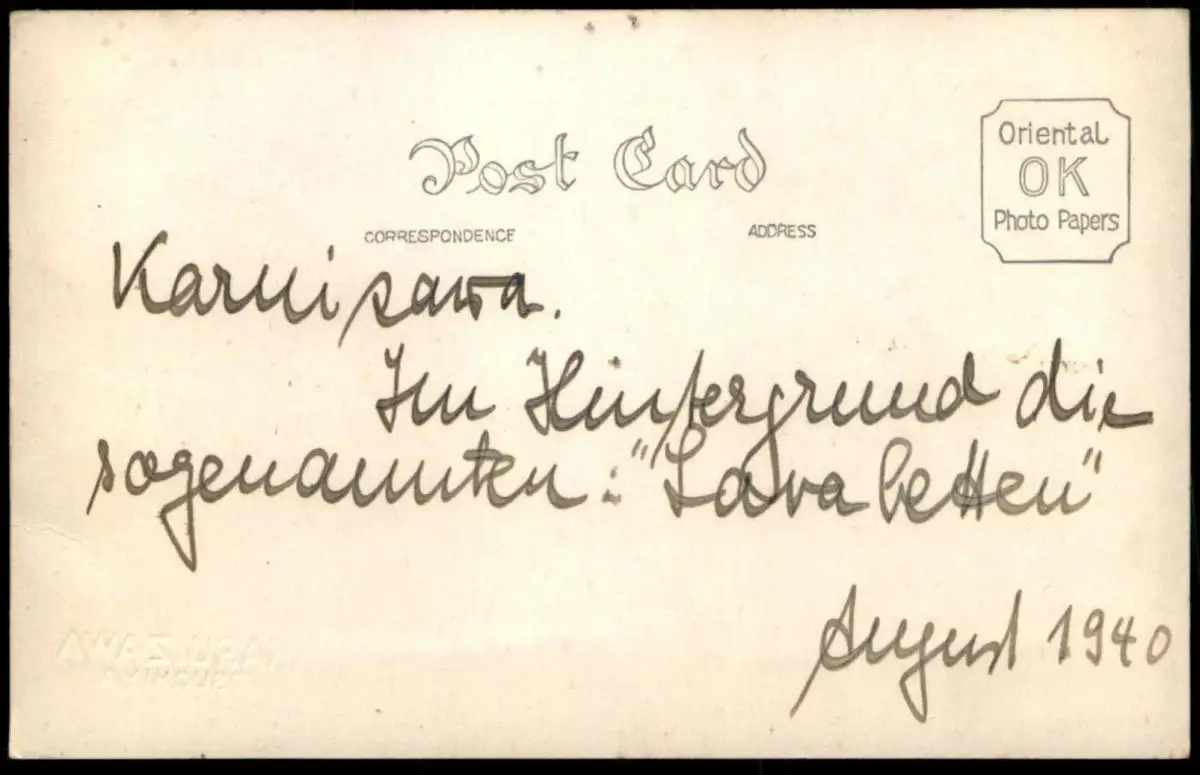 Post Card
CORRESPONDENCE
ADDRESS
Oriental
OK
Photo Papers
Karuisawa.
Im Hintergrund die
sogenannten: "Lavabetten"
August 1940